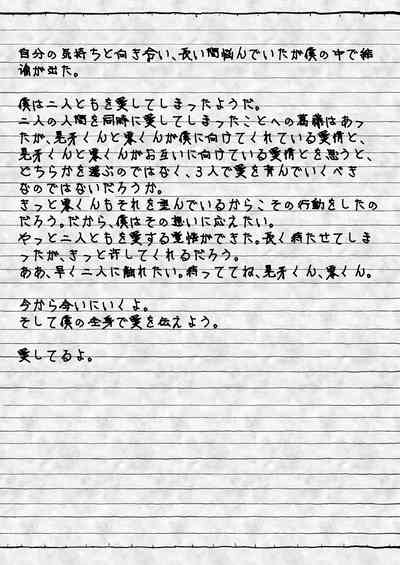 自分の気持ちと向き合い、長い間悩んでいたが僕の中で結
論が出た。
僕は二人ともを愛してしまったようだ。
二人の人間を同時に愛してしまったことへの葛藤はあっ
たが、見矛くんと東くんが僕に向けてくれている愛情と、
見矛くんと東くんがお互いに向けている愛情とを思うと、
どちらかを選ぶのではなく、3人で愛を育んでいくべき
なのではないだろうか。
きっと東くんもそれを望んでいるからこその行動をしたの
だろう。だから、僕はその想いに応えたい。
やっと二人ともを愛する覚悟ができた。長く待たせてしま
ったが、きっと許してくれるだろう。
ああ、早く二人に触れたい。待っててね、見矛くん、東くん。
今から会いにいくよ。
そして僕の全身で愛を伝えよう。
愛してるよ。